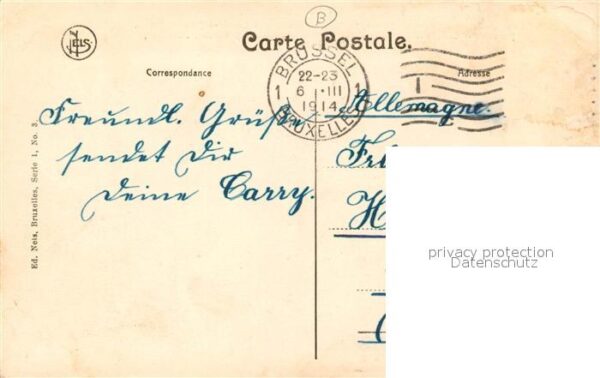 B
NELS
Carte Postale.
Correspondance
Adresse
BRÜSSEL
22-23
1 6 III 1
1914
BRUXELLES
Allemagne.
Freundl. Grüße
sendet Dir
Deine Carry.
Ed. Nels, Bruxelles, Serie 1, No. 3
privacy protection
Datenschutz